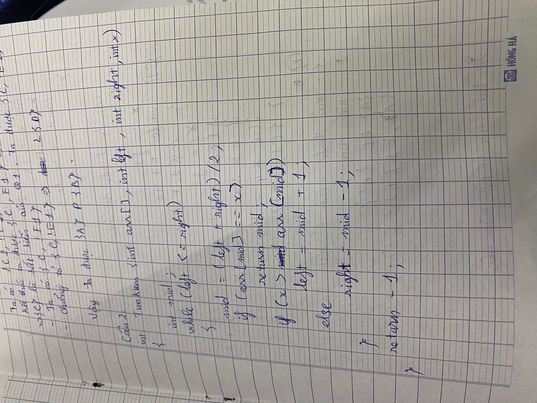 Ta có {C, !E1}
=> {C} là bất biến của Q1. Ta được {C, !E1}
- Ta có {C, !E1}
- Chứng tỏ {C, !E1} => {B}
Vậy ta được {A} P {B}.
Câu 2:
int Timkiem {int arr[], int left, int right, int x)
{
int mid;
while (left <= right)
{
mid = (left + right) / 2;
if (arr[mid] == x)
return mid;
if (x > arr (mid))
left = mid + 1;
else
right = mid - 1;
}
return - 1;
}
HỒNG HÀ